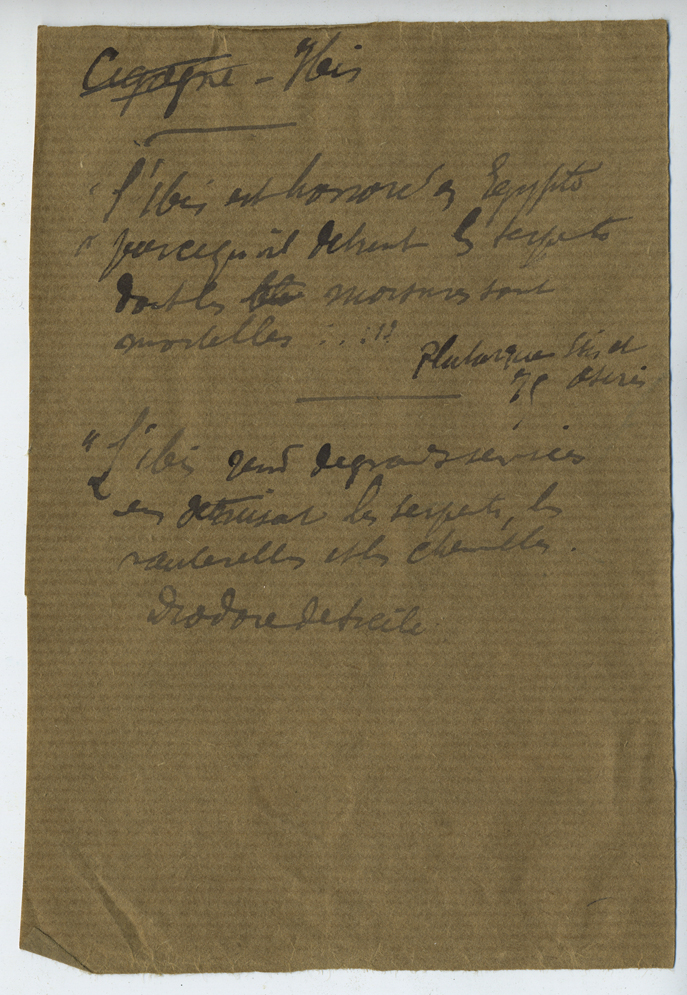 Cigogne - Ibis
"l'Ibis est honoré en Egypte
" parcequ'il detruit les serpents
dont les morsures sont
mortelles ...!!
Plutarque Isis et
75 Osiris
"L'ibis rend de grands services
en detruisant les serpents, les
sauterelles et les chenilles.
Diodore de Sicile